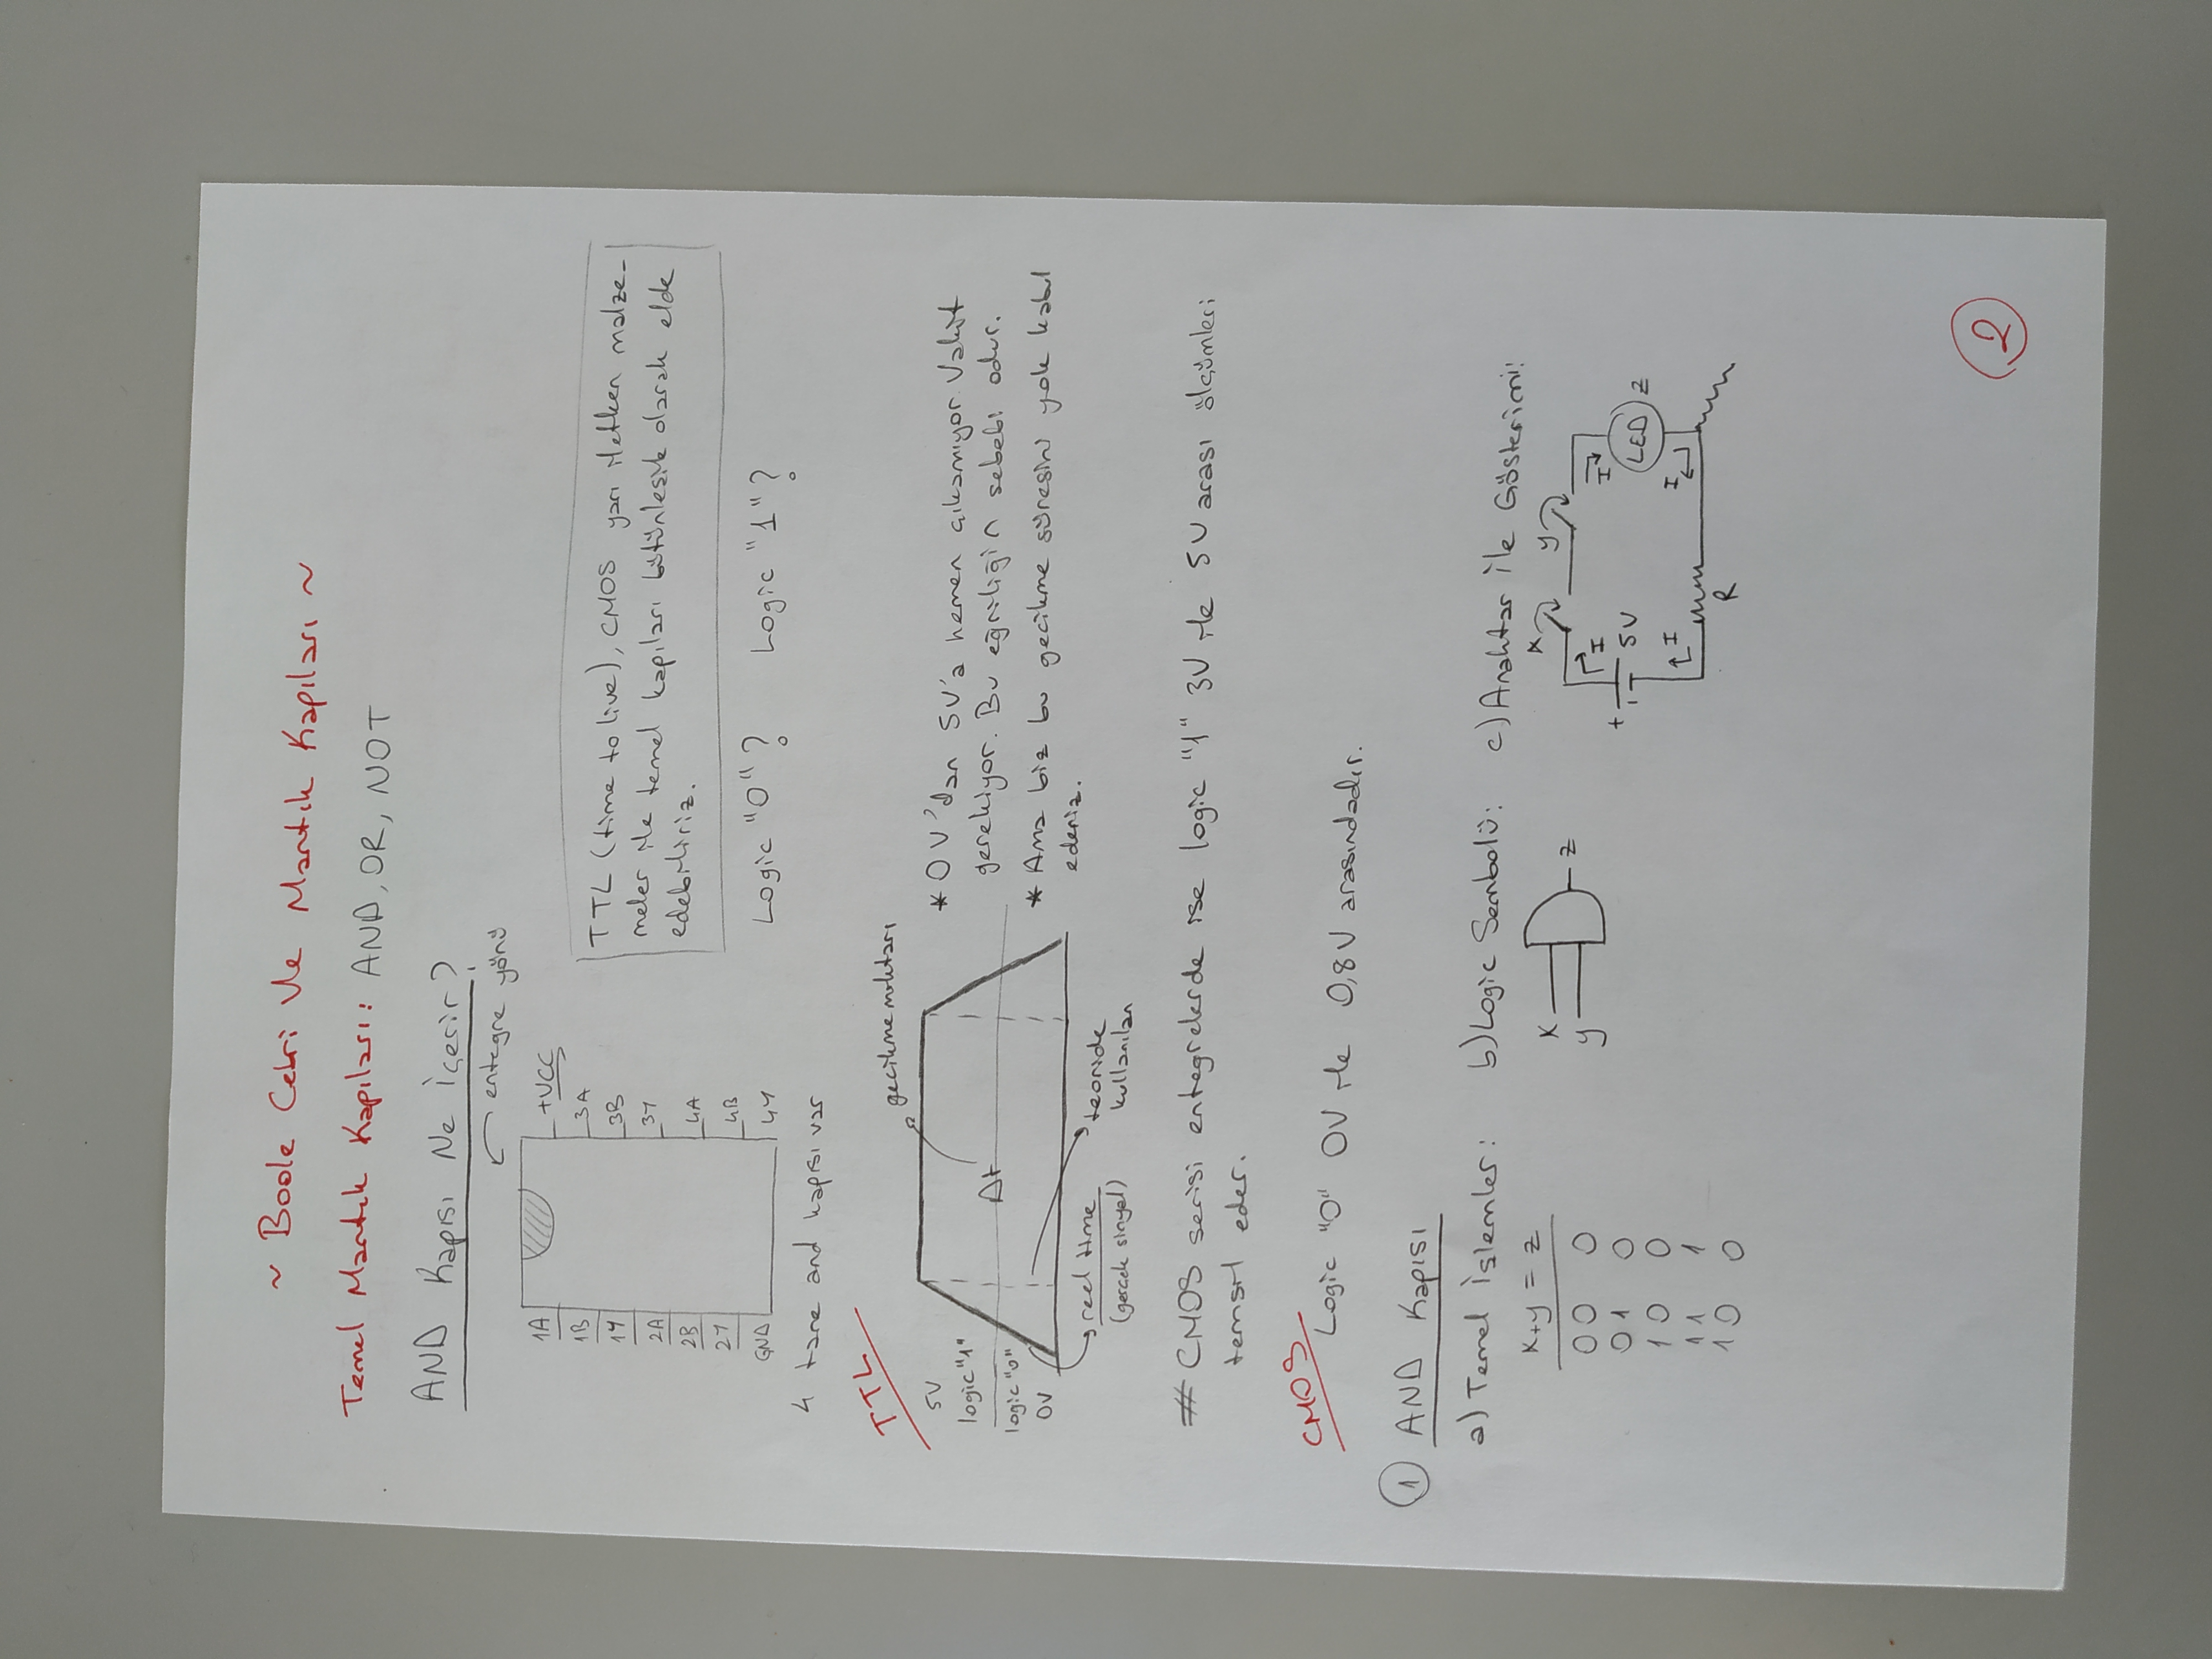 ~ Boole Cebri Ve Mantık Kapıları ~
Temel Mantık Kapıları: AND, OR, NOT
AND Kapısı Ne İçerir?
entegre yönü
1A
1B
1Y
2A
2B
2Y
GND
+VCC
3A
3B
3Y
4A
4B
4Y
4 tane and kapısı var
TTL (time to live), CMOS yarı iletken malze-
meler ile temel kapıları bütünleşik olarak elde
edebiliriz.
Logic "0"? Logic "1"?
TTL
gecikme miktarı
5V
logic "1"
logic "0"
0V
Δt
reel time
(gerçek sinyal)
teoride
kullanılan
* 0V'dan 5V'a hemen çıkamıyor. Vakit
gerekiyor. Bu eğriliğin sebebi odur.
* Ama biz bu gecikme süresini yok kabul
ederiz.
# CMOS serisi entegrelerde ise logic "1" 3V ile 5V arası ölçümleri
temsil eder.
CMOS
Logic "0" 0V ile 0,8V arasındadır.
1 AND Kapısı
a) Temel İşlemler: b) Logic Sembolü: c) Anahtar İle Gösterimi:
x+y = z
00 0
01 0
10 0
11 1
10 0
x
y
z
x y
I I
+
- 5V
LED z
I I
R
2